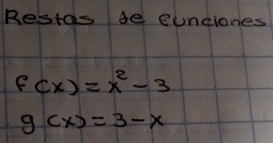 Restas de funciones
f(x) = x² - 3
g(x) = 3 - x